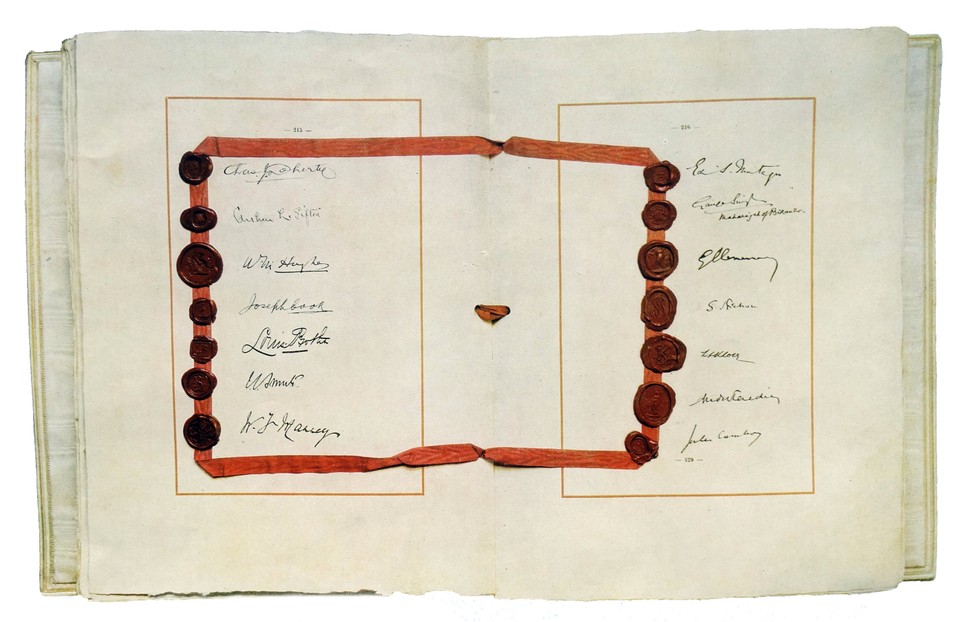 — 215 —
Chas. J. Doherty
Arthur L. Sifton
W M Hughes
Joseph Cook
Louis Botha
W. F. Massey
— 216 —
Ed. S. Montagu
Ganga Singh
Maharajah of Bikaner
G Clemenceau
S. Pichon
L L Klotz
André Tardieu
Jules Cambon